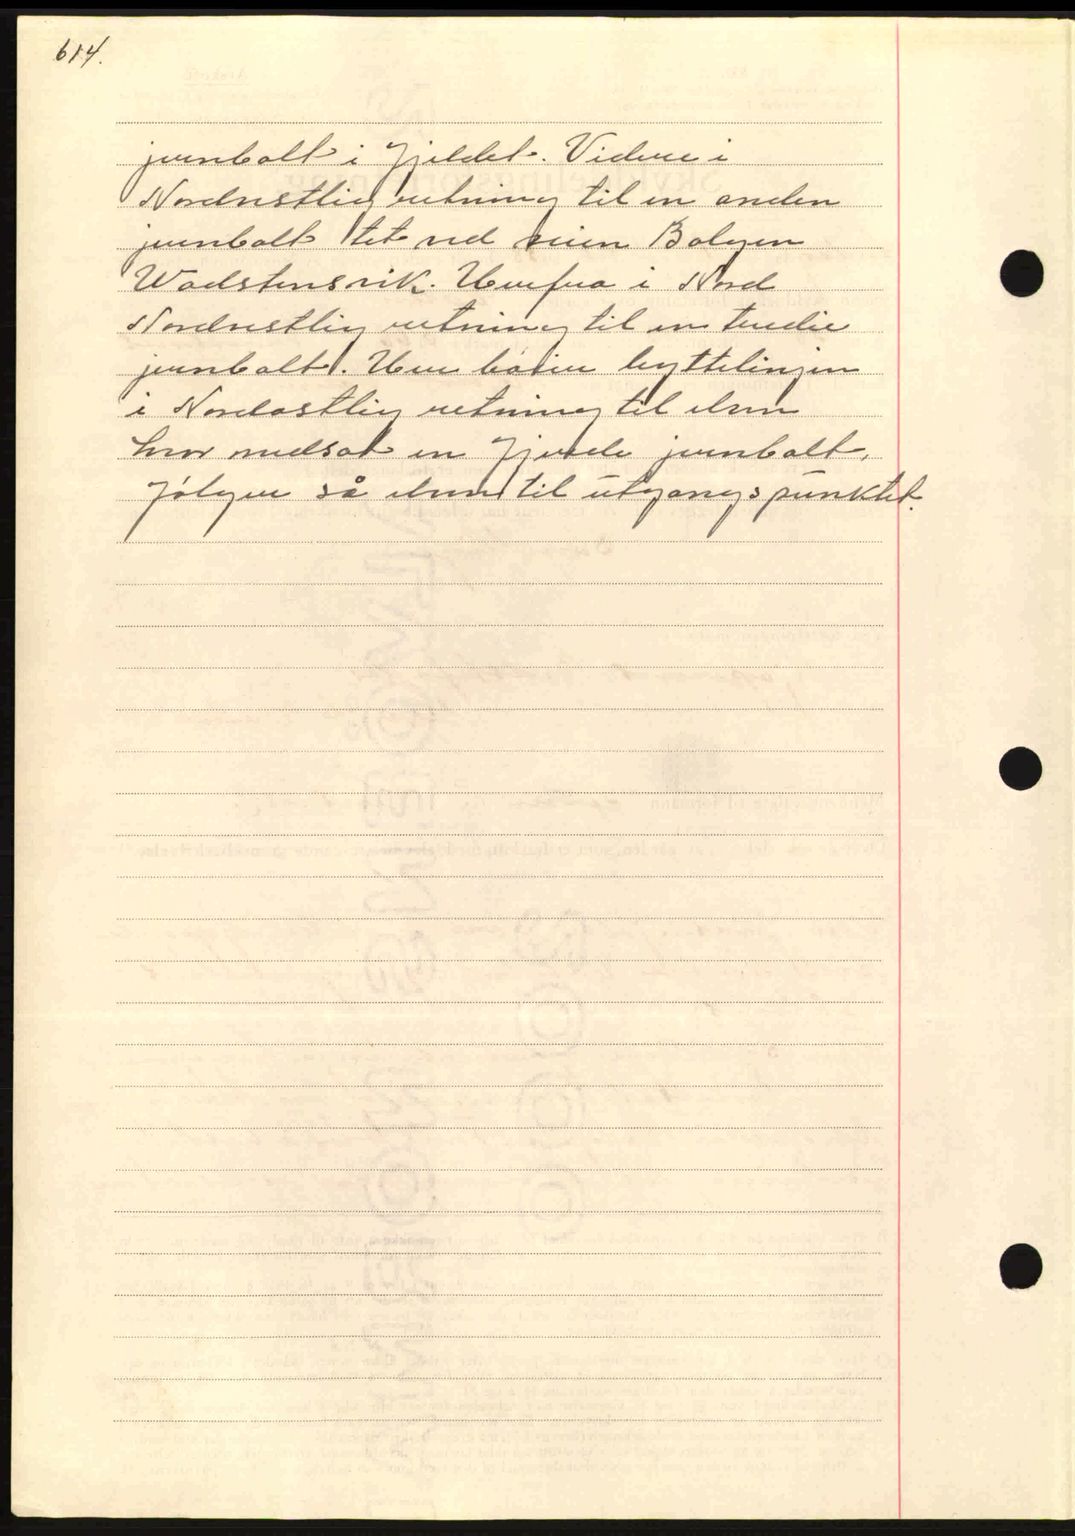 614.
jernbolt i Fjeldet. Videre i
Nordvestlig retning til en anden
jernbolt tet ved veien Bolgen
Wadstensvik. Herfra i Nord
Nordvestlig retning til en tredie
jernbolt. Her bøier byttelinjen
i Nordostlig retning til elven
hvor nedsat en Fjerde jernbolt,
Følger så elven til utgangspunktet.